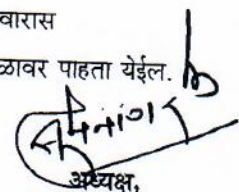 वारास
ळावर पाहता येईल.
अध्यक्ष,